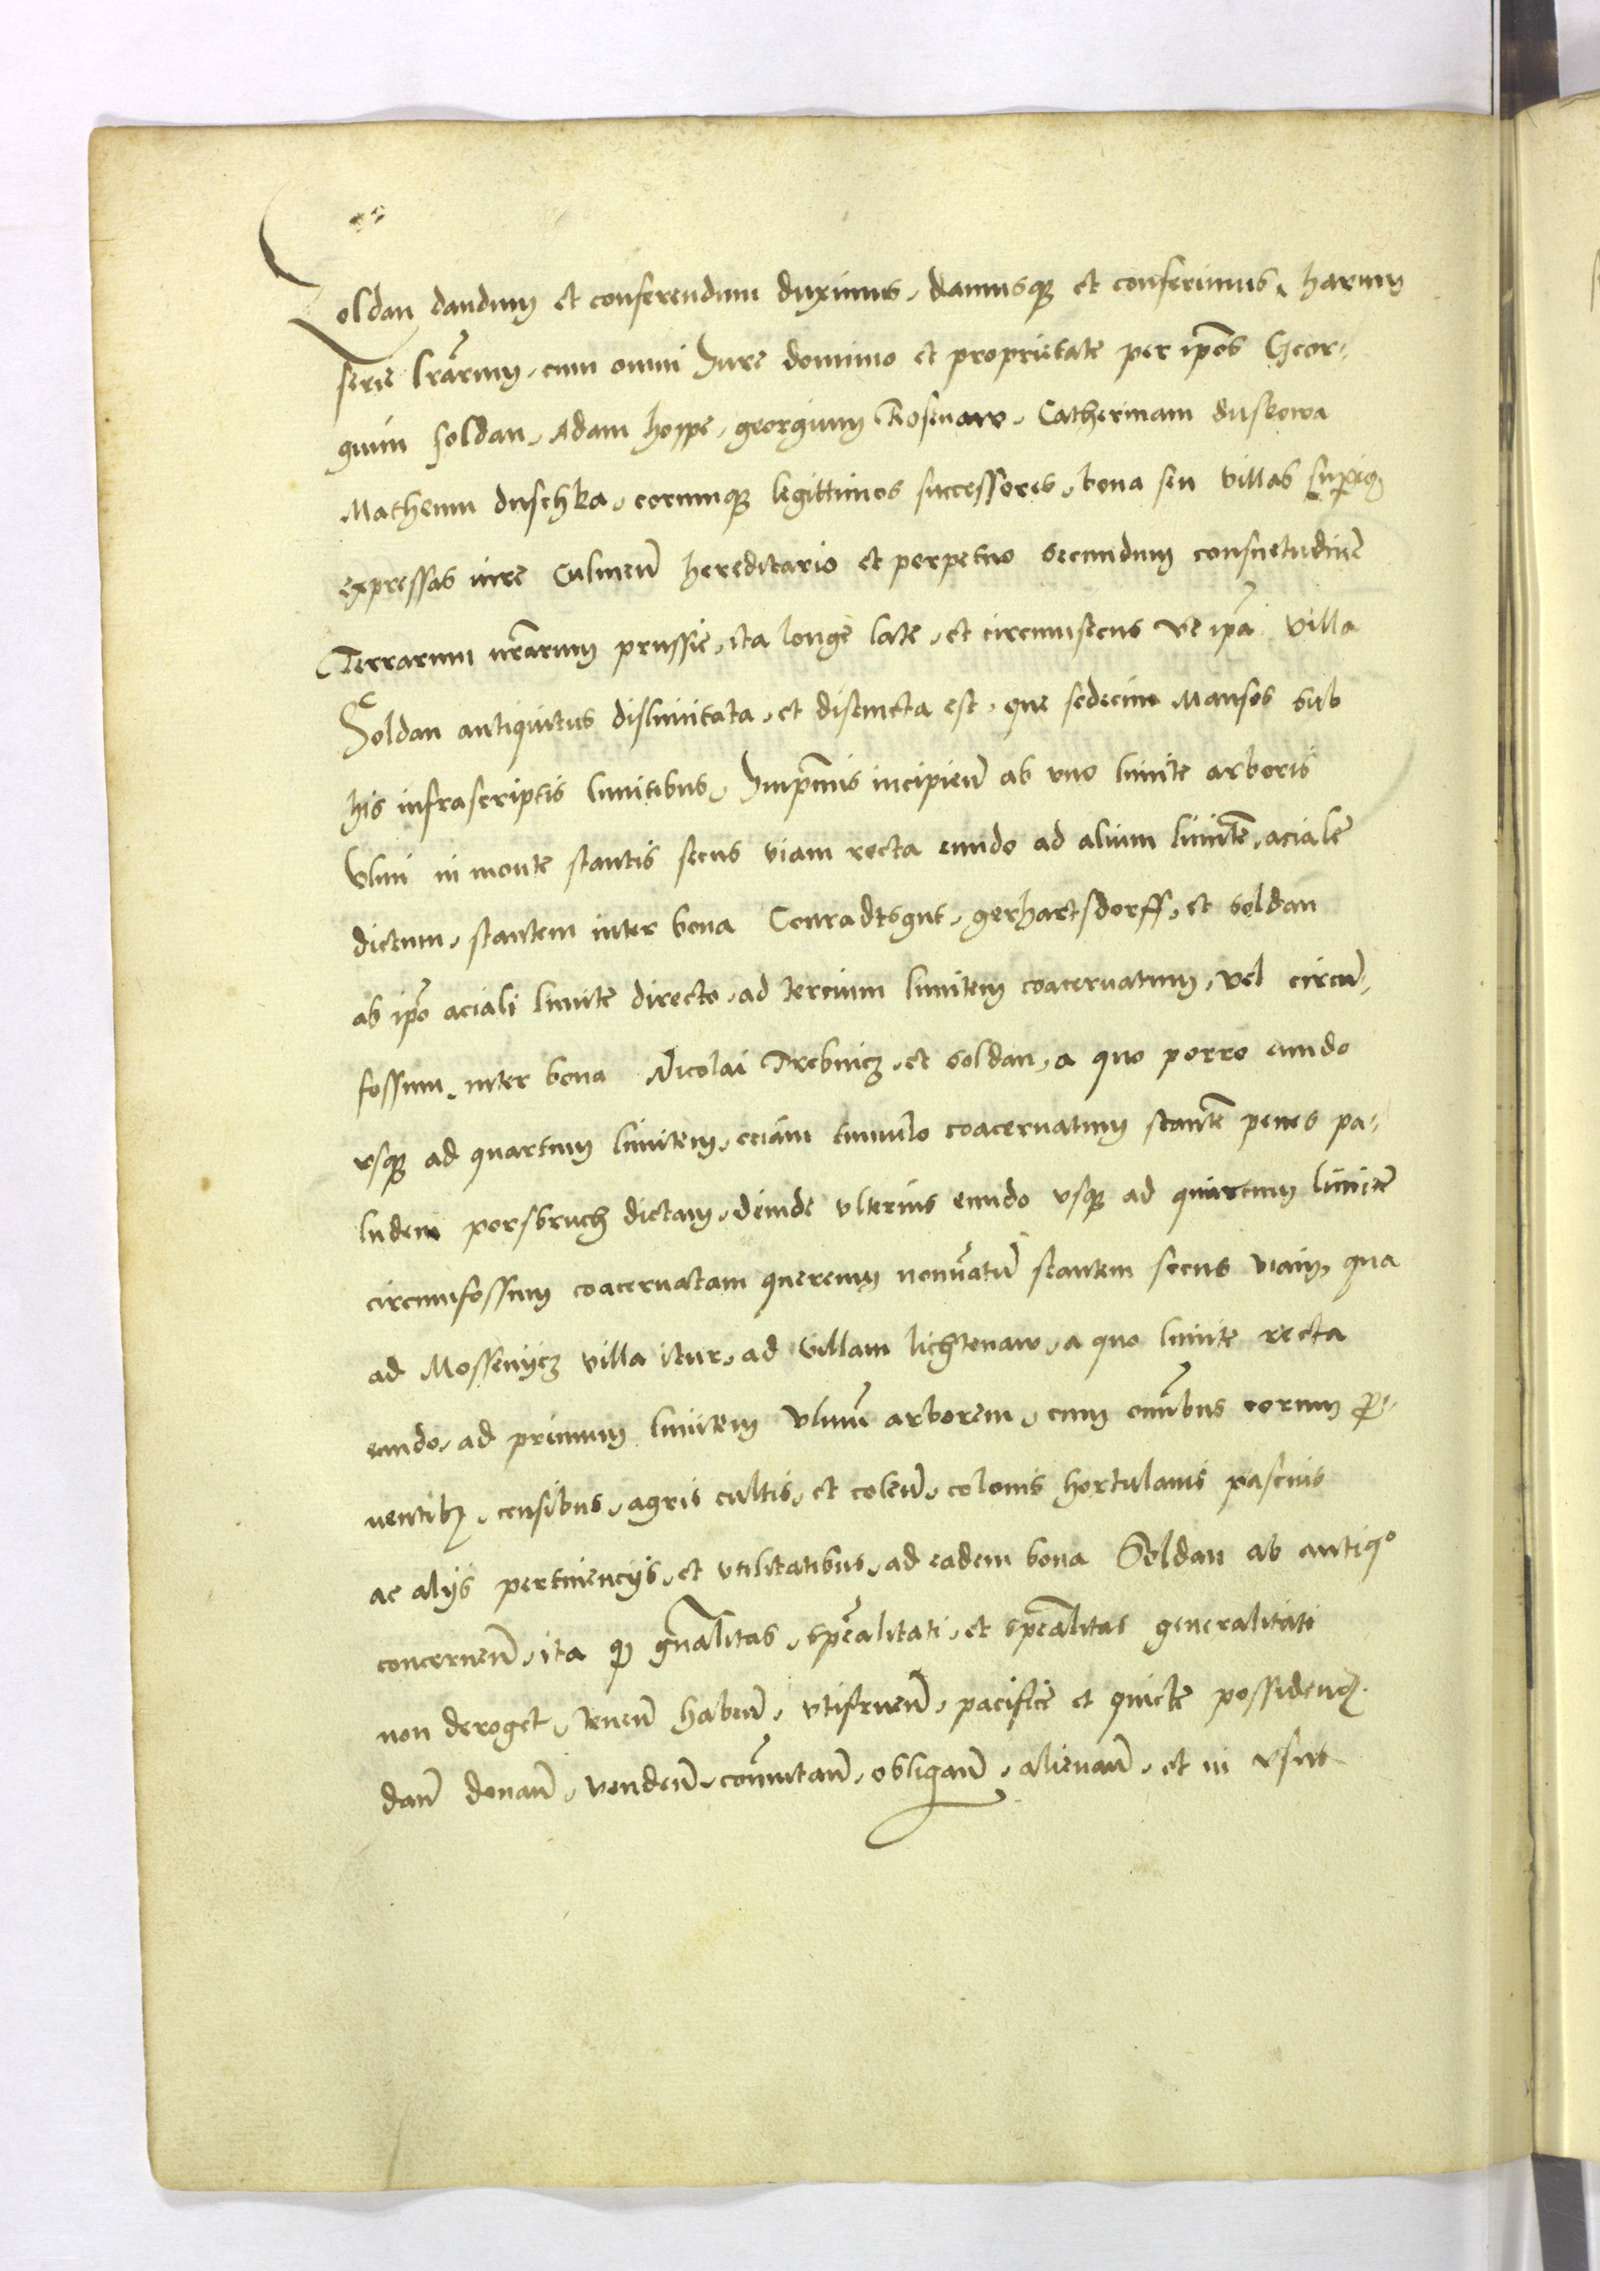 Soldan dandum et conferendum duximus, damusq3 et conferimus, harum
serie lrārum, cum omni Jure dominio et proprietate per ip̄os Geor-
gium Soldan, Adam hoppe, georgium Rosenaw, Catherinam duskowa
Matheum duschka, eorumq3 legittimos successores, bona seu villas
expressas iure Culmeñ hereditario et perpetuo secundum consuetudinē
Terrarum nr̄arum prussie, ita longe late, et circumsecus ve ip̄a villa
Soldan antiquitus dislimitata, et distincta est, que sedecim Mansos sub
his infrascriptis limitibus, Imp̄mis incipieñ ab vno limite arboris
Vlmi in monte stantis secus viam recta eundo ad alium limitē, acialē
dictum, stantem inter bona Conradtsgut, gerhartsdorff, et soldan
ab ip̄o aciali limite directo, ad tercium limitem coaceruatum, vel circū-
fossum, inter bona Nicolai Trebnicz, et soldan, a quo porro eundo
vsq3 ad quartum limitem, eciam tumulo coaceruatum stantē penes pa-
ludem porsbruch dictam, deinde vlterius eundo vsq3 ad quintum limitē
circumfossum coaceruatam quercum stantem secus viam, qua
ad Mossenycz villa itur, ad villam lichtenaw, a quo limite recta
eundo, ad primum limitem Vlmū arborem, cum om̄ibus eorum ꝓ-
uentib3, censibus, agris cultis, et coleñ, colonis hortulanis pascuis
ac alijs pertinencijs, et vtilitatibus, ad eadem bona Soldan ab antiqo
concerneñ, ita q gn̄alitas, sp̄ealitati, et sp̄ealitas generalitati
non deroget, teneñ habeñ, vtifrueñ, pacifice et quiete possidenđ.
dañ donañ, vendeñ, com̄utañ, obligañ, alienañ, et in vsus